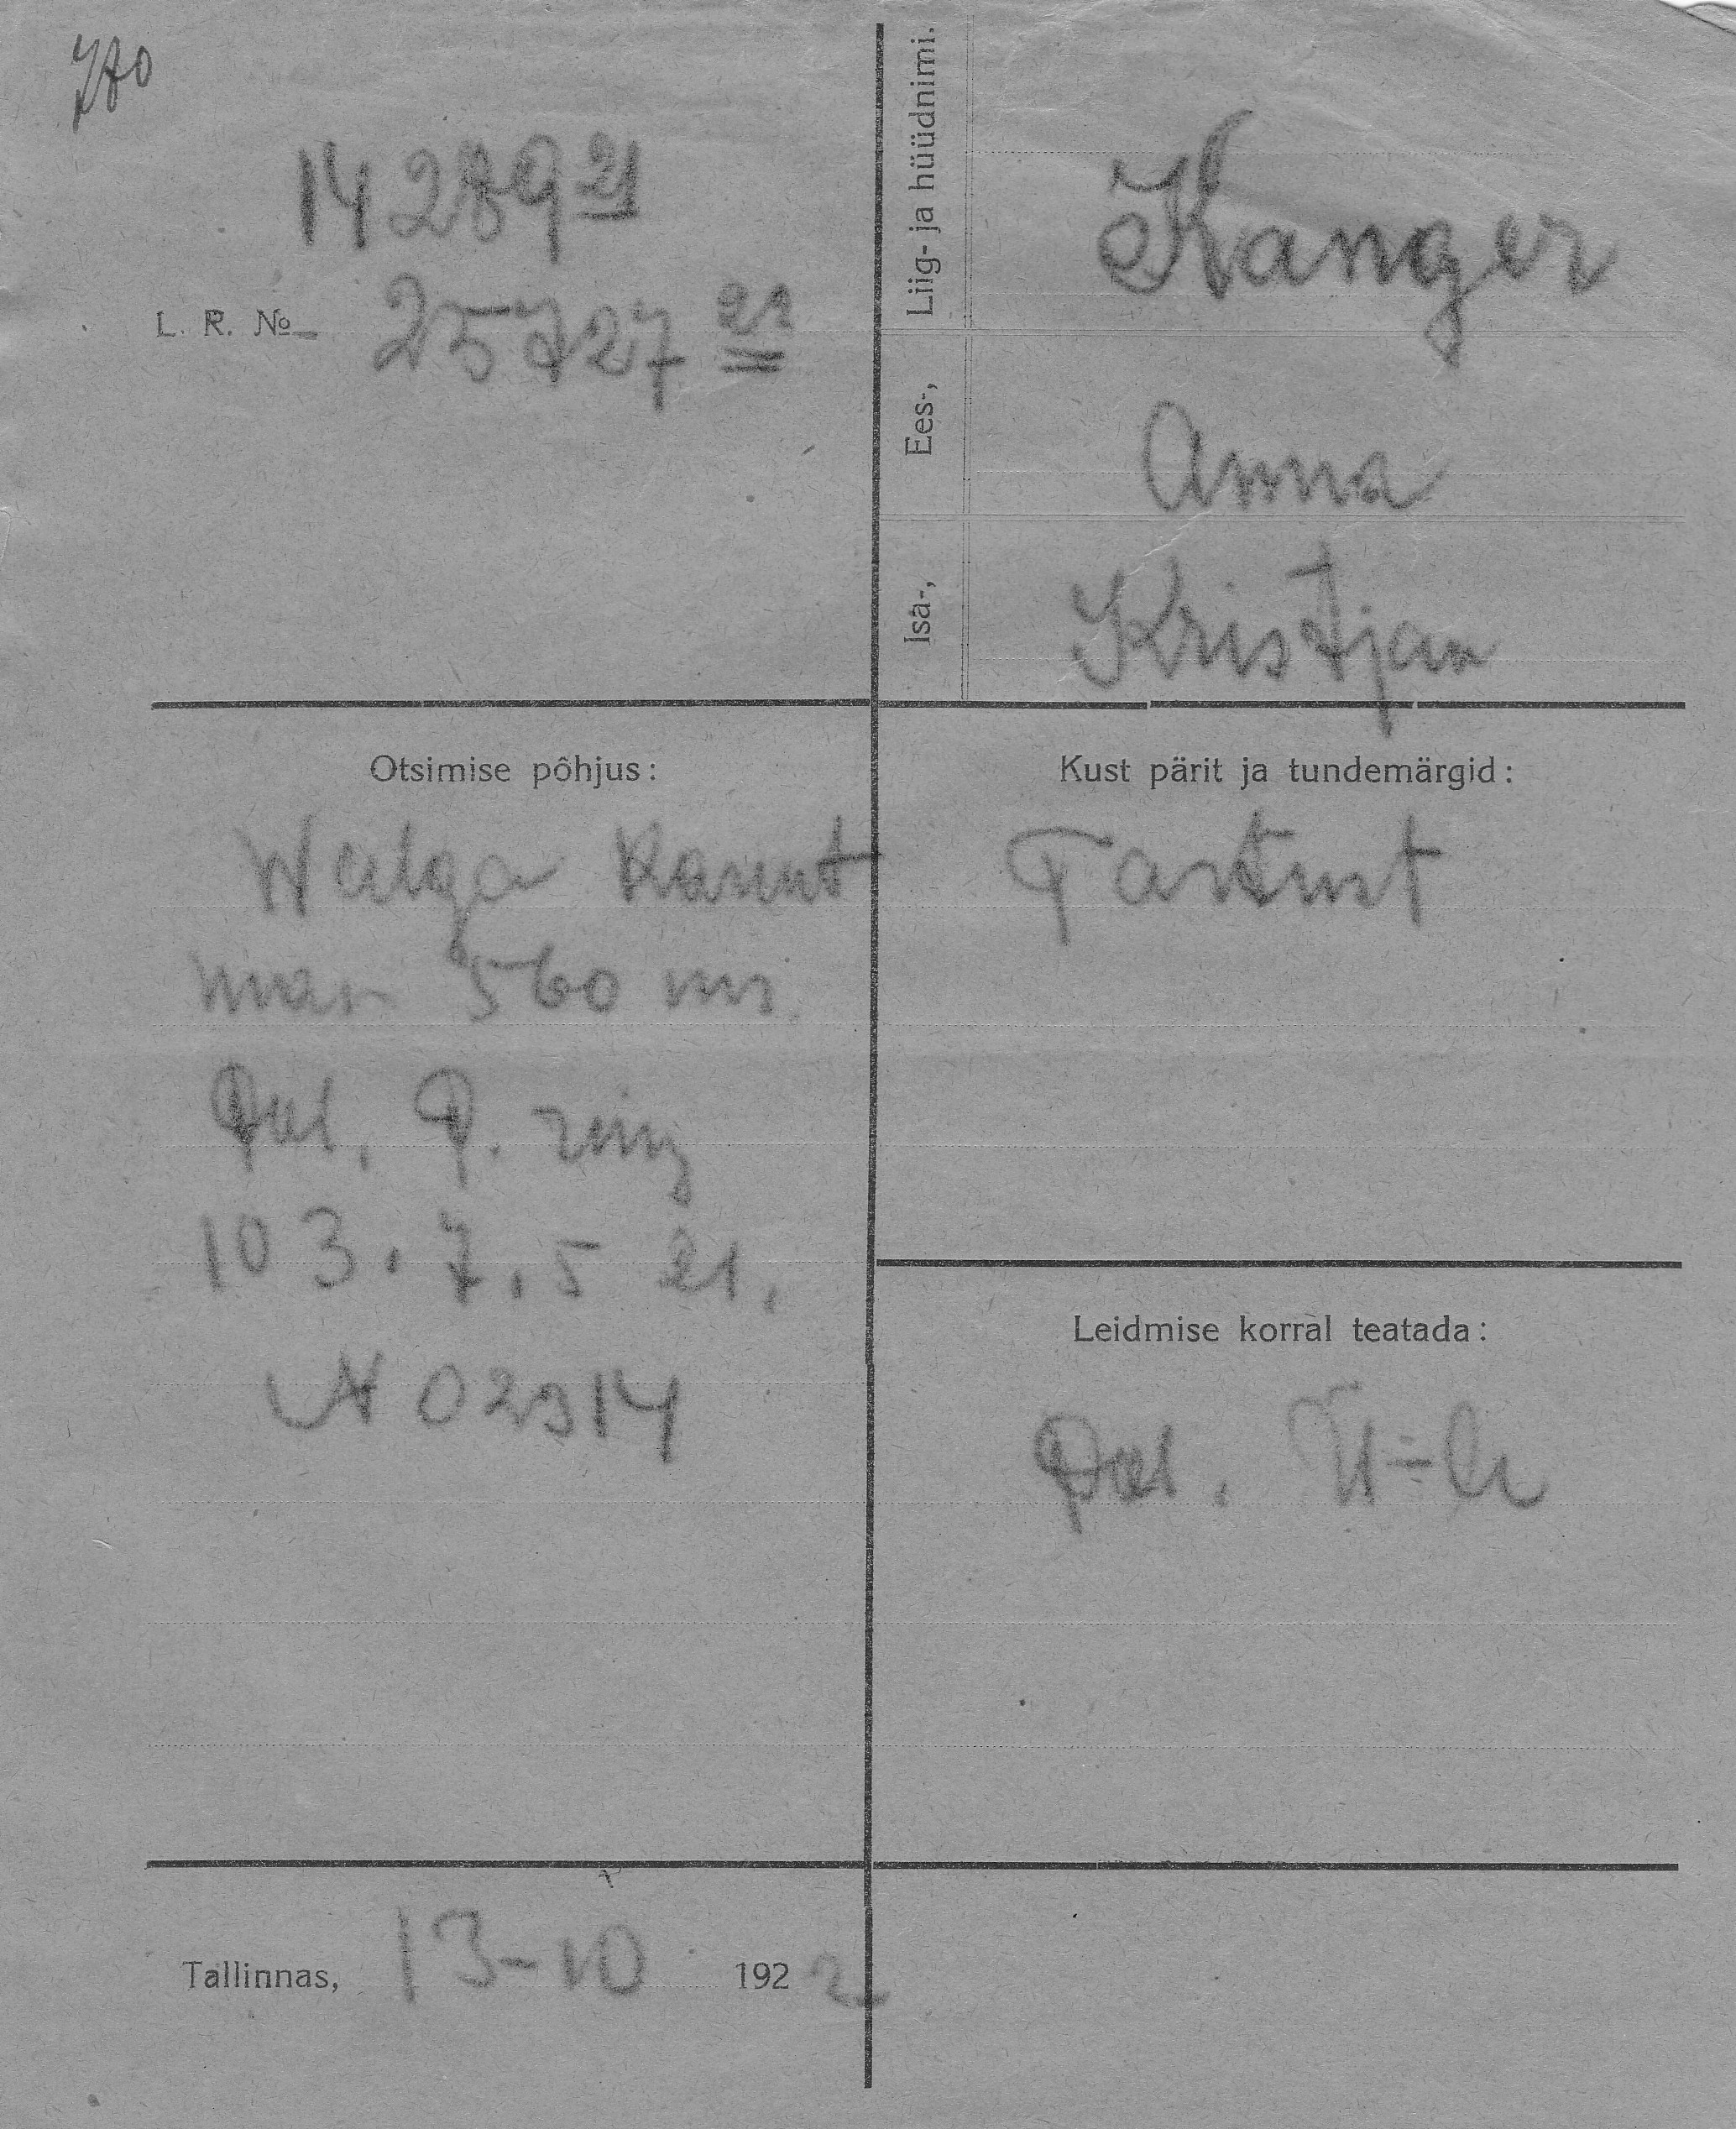 14289 21
L. R. № 25727 22
Liig- ja hüüdnimi.
Kanger
Ees-,
Anna
Isa-,
Kristjan
Otsimise põhjus:
Walga
560 mr.
Pol. P. ring
103. 7. 5 21.
N 02914
Kust pärit ja tundemärgid:
Tartust
Leidmise korral teatada:
Pol.
Tallinnas, 13-10 1922